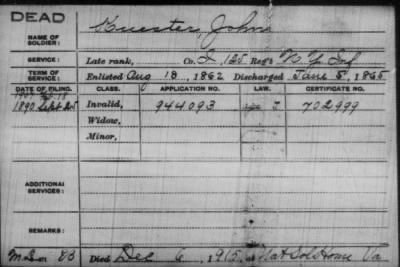 DEAD
NAME OF SOLDIER: Kuester, John
SERVICE: Late rank, Co. I, 125 Reg't N.Y. Inf
TERM OF SERVICE: Enlisted Aug 18, 1862 Discharged June 5, 1865
DATE OF FILING. CLASS. APPLICATION NO. LAW. CERTIFICATE NO.
1890 Sept 25 Invalid, 944.093 702999
Widow,
Minor,
ADDITIONAL SERVICES:
REMARKS:
Died Dec 6, 1915, Nat Sol Home Va